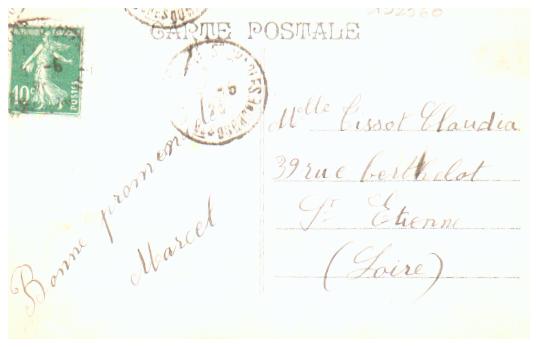 CARTE POSTALE
10c
POSTES
Bonne promenade
Marcel
Mlle Cissot Claudia
39 rue Berthelot
St Etienne
(Loire)